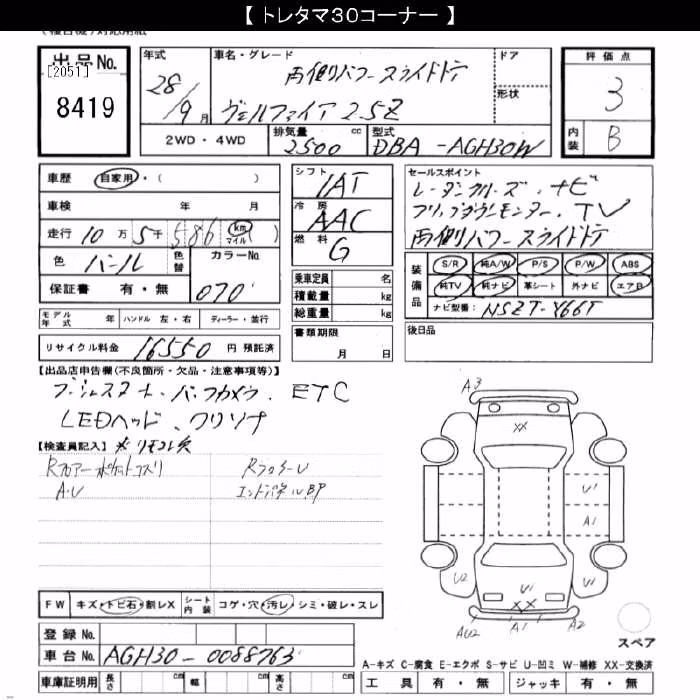 【 トレタマ30コーナー 】
出品No.
[2051]
8419
年式
28/9月
車名・グレード
両側パワースライドドア
ヴェルファイア 2.5Z
ドア
形状
評価点
3
内装
B
2WD・4WD
排気量
2500 cc
型式
DBA-AGH30W
車歴 自家用・( )
車検 年 月
走行 10万5千586 km マイル ( )
色 パール 色替 カラーNo. 070
保証書 有・無
シフト
IAT
冷房
AAC
燃料
G
セールスポイント
レーダークルーズ、ナビ
フリップダウンモニター、TV
両側パワースライドドア
装備品 S/R 純A/W P/S P/W ABS
純TV 純ナビ 革シート 外ナビ エアB
ナビ型番: NSZT-Y66T
乗車定員 名
積載量 kg
総重量 kg
モデル年式 年 ハンドル 左・右 ディーラー・並行
書類期限
月 日
後日品
リサイクル料金 16550 円 預託済
【出品店申告欄(不良箇所・欠品・注意事項等)】
プッシュスタート、バックカメラ、ETC
LEDヘッド、クリソナ
【検査員記入】 ※リモコン欠
Rフロアーポケットコスリ
A.U
RフェンダーU
エンドパネルBP
A3
XX
U1
A1
U2
U1
XX
AU2
A1
A2
スペア
FW キズ・トビ石・割レX シート内装 コゲ・穴・汚レ・シミ・破レ・スレ
登録No.
車台No. AGH30-0088763
車庫証明用 長さ cm 幅 cm 高さ cm
A-キズ C-腐食 E-エクボ S-サビ U-凹ミ W-補修 XX-交換済
工具 有・無 ジャッキ 有・無